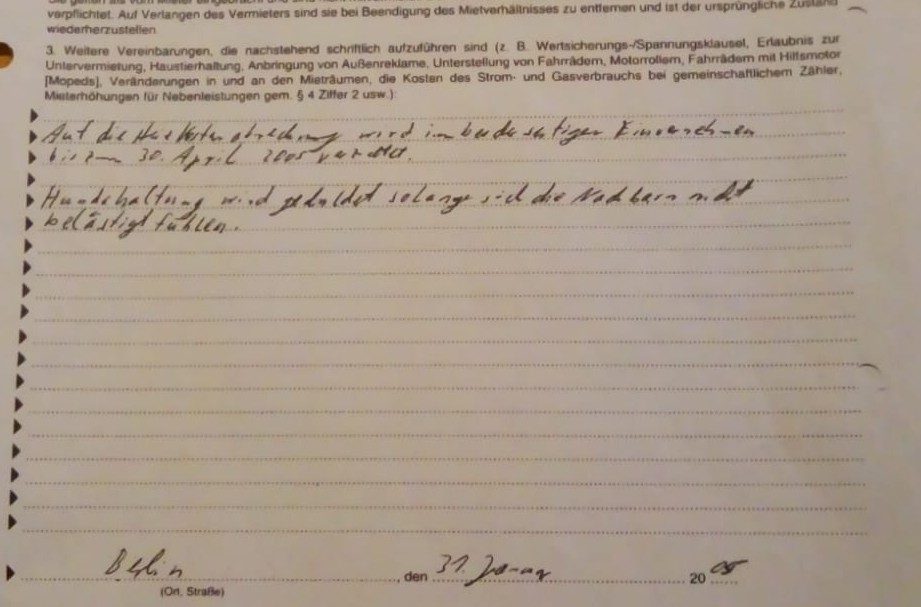 verpflichtet. Auf Verlangen des Vermieters sind sie bei Beendigung des Mietverhältnisses zu entfernen und ist der ursprüngliche Zustand
wiederherzustellen.
3. Weitere Vereinbarungen, die nachstehend schriftlich aufzuführen sind (z. B. Wertsicherungs-/Spannungsklausel, Erlaubnis zur
Untervermietung, Haustierhaltung, Anbringung von Außenreklame, Unterstellung von Fahrrädern, Motorrollern, Fahrrädern mit Hilfsmotor
[Mopeds], Veränderungen in und an den Mieträumen, die Kosten des Strom- und Gasverbrauchs bei gemeinschaftlichem Zähler,
Mieterhöhungen für Nebenleistungen gem. § 4 Ziffer 2 usw.):
Auf die wird im beiderseitigen Einvernehmen
bis zum 30. April 2005
Hundehaltung wird geduldet solange sich die Nachbarn nicht
belästigt fühlen.
Berlin, den 31. Januar 2005
(Ort, Straße)